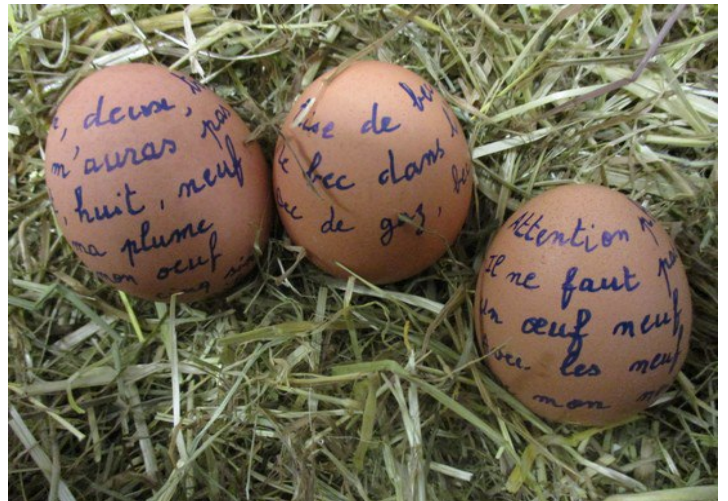 deux,
m'auras pas
huit, neuf
ma plume
mon oeuf
de
bec dans
bec de gaz,
Attention
Il ne faut
un œuf neuf
avec les neuf
mon